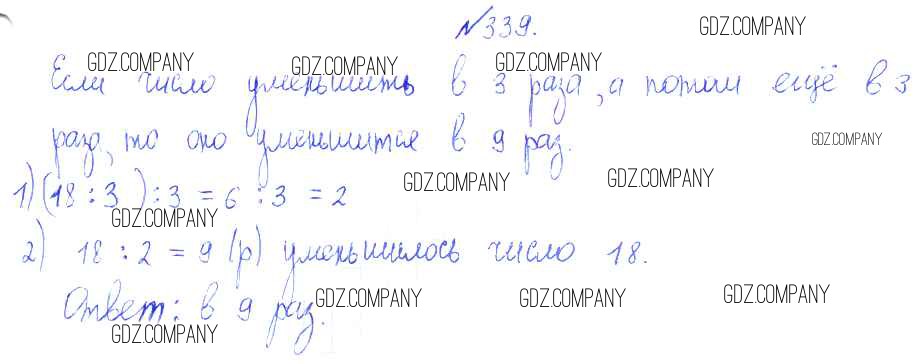 №339.
GDZ.COMPANY
GDZ.COMPANY GDZ.COMPANY GDZ.COMPANY
Если число уменьшить в 3 раза, а потом ещё в 3
раза, то оно уменьшится в 9 раз.
GDZ.COMPANY
1) (18 : 3) : 3 = 6 : 3 = 2
GDZ.COMPANY GDZ.COMPANY
GDZ.COMPANY
2) 18 : 2 = 9 (р) уменьшилось число 18.
Ответ: в 9 раз.
GDZ.COMPANY GDZ.COMPANY GDZ.COMPANY
GDZ.COMPANY